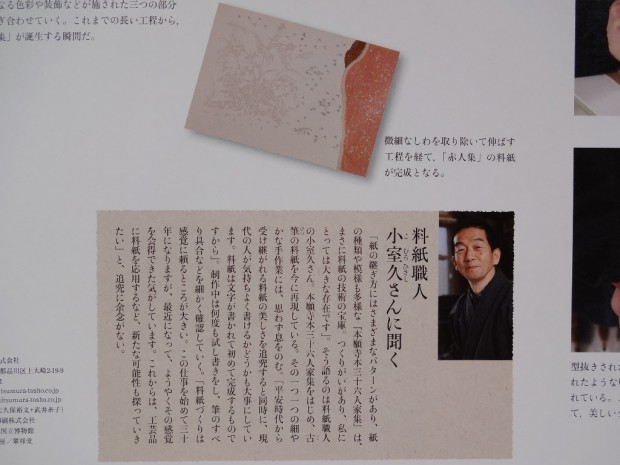 なる色彩や装飾などが施された三つの部分
ぎ合わせていく。これまでの長い工程から、
集」が誕生する瞬間だ。
微細なしわを取り除いて伸ばす
工程を経て、「赤人集」の料紙
が完成となる。
料紙職人
小室久さんに聞く
こむろひさし
「紙の継ぎ方にはさまざまなパターンがあり、紙
の種類や模様も多様な『本願寺本三十六人家集』は、
まさに料紙の技術の宝庫。つくりがいがあり、私に
とっては大きな存在です」。そう語るのは料紙職人
の小室久さん。本願寺本三十六人家集をはじめ、古
筆の料紙を今に再現している。その一つ一つの細や
かな手作業には、思わず息をのむ。「平安時代から
受け継がれる料紙の美しさを追究すると同時に、現
代の人が気持ちよく書けるかどうかも大事にしてい
ます。料紙は文字が書かれて初めて完成するもので
すから」。制作中は何度も試し書きをし、筆のすべ
り具合などを細かく確認していく。「料紙づくりは
感覚に頼るところが大きい。この仕事を始めて三十
年になりますが、最近になって、ようやくその感覚
を会得できた気がしています。これからは、工芸品
に料紙を応用するなど、新たな可能性も探っていき
たい」と、追究に余念がない。
式会社
都品川区上大崎2-19-9
tsumura-tosho.co.jp
itsumura-tosho.co.jp
大久保裕文+武井糸子)
印刷株式会社
国立博物館
屋／筆祥堂
型抜きされた
れたような
れている。
て、美しい